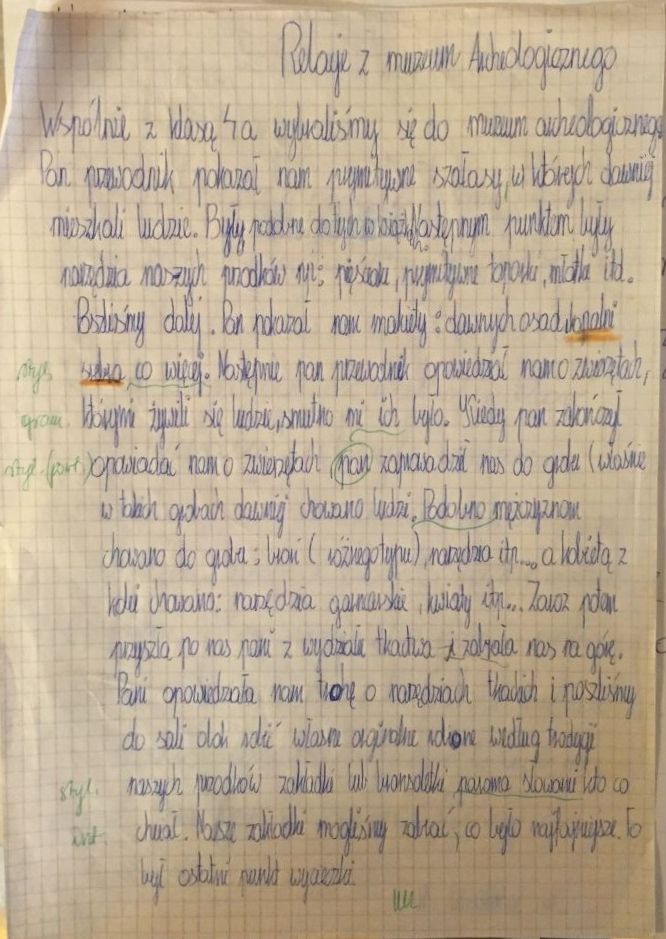 Relacje z muzeum Archeologicznego
Wspólnie z klasą 4a wybraliśmy się do muzeum archeologicznego
Pan przewodnik pokazał nam prymitywne szałasy, w których dawniej
mieszkali ludzie. Były podobne do tych w książkach. Następnym punktem były
narzędzia naszych przodków np: pięściaki, prymitywne toporki, młotki itd.
Poszliśmy dalej. Pan pokazał nam makiety: dawnych osad, kopalni
styl. co więcej. Następnie pan przewodnik opowiedział nam o zwierzętach,
gram. którymi żywili się ludzie, smutno mi ich było. Kiedy pan zakończył
styl. (powt.) opowiadać nam o zwierzętach pan zaprowadził nas do grobu (właśnie
w takich grobach dawniej chowano ludzi. Podobno mężczyznom
chowano do grobu: broń (różnego typu), narzędzia itp... a kobietą z
kolei chowano: narzędzia garncarskie, kwiaty itp... Zaraz potem
przyszła po nas pani z wydziału tkactwa i zabrała nas na górę.
Pani opowiedziała nam trohę o narzędziach tkackich i poszliśmy
do sali obok robić własne orginalne robione według tradycji
styl. naszych przodków zakładki lub bransoletki kto co
int. chciał. Nasze zakładki mogliśmy zabrać, co było najfajniejsze. To
był ostatni punkt wycieczki.